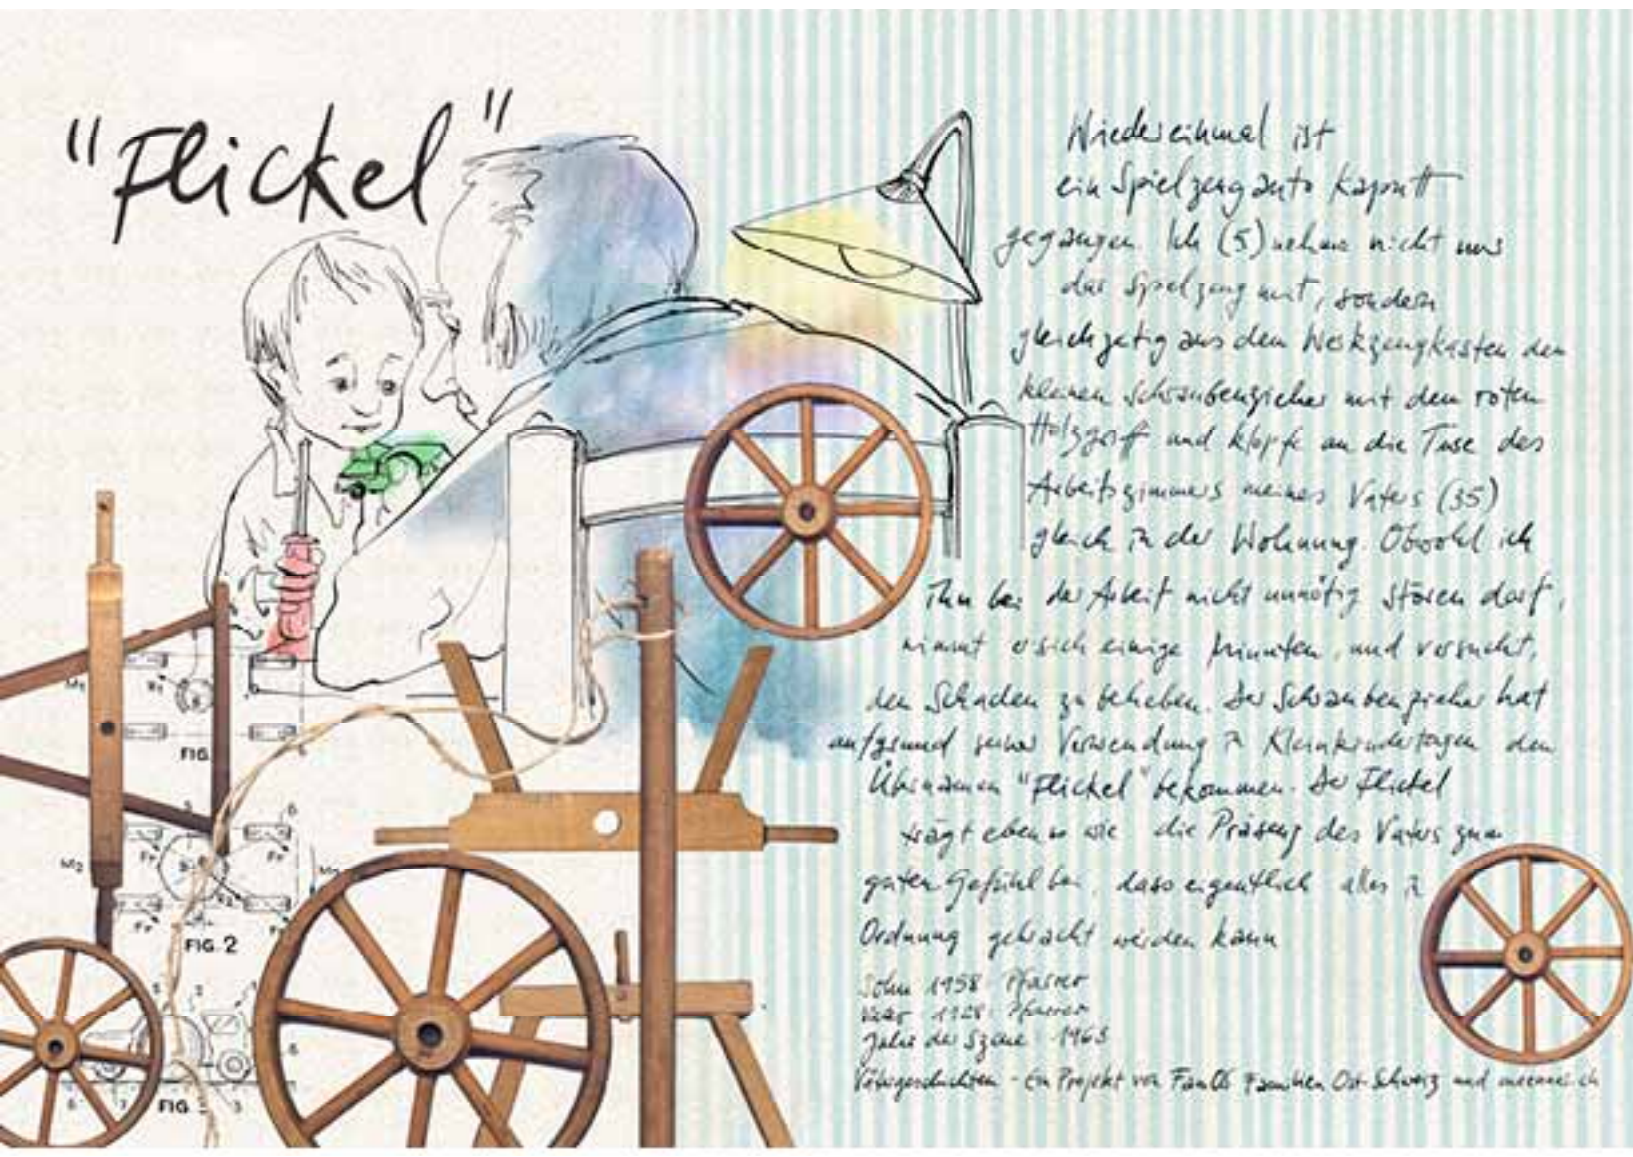 "Flickel"
Wiedereinmal ist
ein Spielzeugauto kaputt
gegangen. Ich (5) nehme nicht nur
das Spielzeug mit, sondern
gleichzeitig aus dem Werkzeugkasten den
kleinen Schraubenzieher mit dem roten
Holzgriff und klopfe an die Türe des
Arbeitszimmers meines Vaters (35)
gleich in der Wohnung. Obwohl ich
ihn bei der Arbeit nicht unnötig stören darf,
nimmt er sich einige Minuten, und versucht,
den Schaden zu beheben. Der Schraubenzieher hat
aufgrund seiner Verwendung in Kleinkindertagen den
Übernamen "Flickel" bekommen. Der Flickel
trägt ebenso wie die Präsenz des Vaters zum
guten Gefühl bei, dass eigentlich alles in
Ordnung gebracht werden kann
Sohn 1958 Pfarrer
Vater 1928 Pfarrer
Jahr der Szene 1963
Vätergeschichten - Ein Projekt von FamOS Familien Ost-Schweiz und
M1
R1
FIG.
6
5
6
Fr
Fr
M2
R2
Fr
FIG. 2
5
3
6
6
7
FIG
3